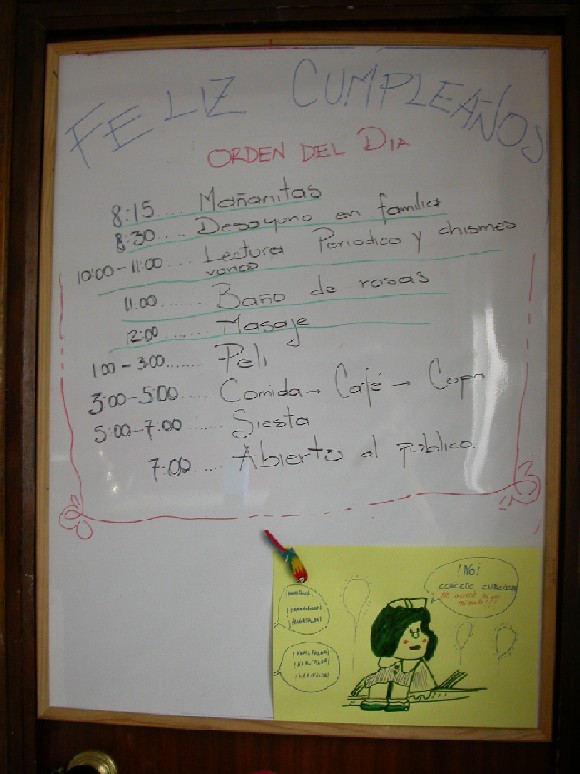 FELIZ CUMPLEAÑOS
ORDEN DEL DIA
8:15.... Mañanitas
8:30.... Desayuno en familia
10:00-11:00.... Lectura Periodico y chismes
varios
11.00...... Baño de rosas
12:00...... Masaje
1:00-3:00....... Peli
3:00-5:00.... Comida → Café → Copa
5:00-7:00.... Siesta
7:00.... Abierto al público
¡NO!